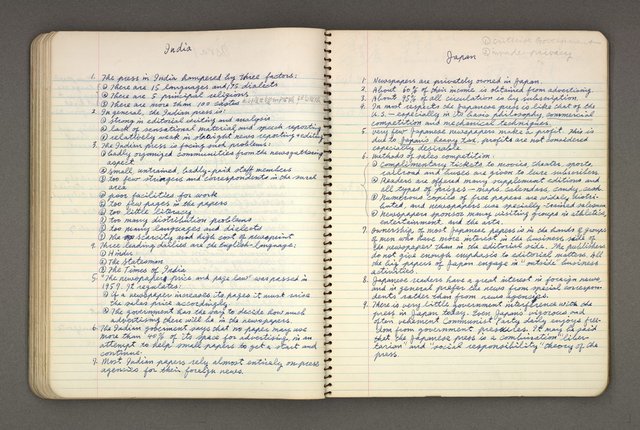 India
1. The press in India hampered by three factors:
① There are 15 languages and 75 dialects
② There are 5 principal religions
③ There are more than 100 castes
2. In general, the Indian press is:
① Strong in editorial writing and analysis
② Lack of sensational material and speech reporting
③ relatively weak in straight news reporting
3. The Indian press is facing such problems:
① badly organized communities from the newsgathering
aspect
② small, untrained, badly-paid staff members
③ too few stringers and correspondents in the rural
area
④ poor facilities for work
⑤ too few pages in the papers
⑥ too little literacy
⑦ too many distribution problems
⑧ too many languages and dialects
⑨ the scarcity and high cost of newsprint
4. Three leading dailies are the English-language:
① Hindu
② The Statesman
③ The Times of India
5. "The newspaper price and page law" was passed in
1957. It regulates:
① if a newspaper increases its pages it must raise
the sales price accordingly
② The government has the say to decide how much
advertising there will be in the newspapers.
6. The Indian goverment says that no paper may use
more than 40% of its space for advertising in an
attempt to help small papers to get a start and
continue.
7. Most Indian papers rely almost entirely on press
agencies for their foreign news.
Japan
1. Newspapers are privately owned in Japan.
2. About 60% of their income is obtained from advertising
3. About 95% of all circulation is by subscription.
4. In most respects the Japanese press is like that of the
U.S. – especially in its libero philosophy, commercial
competition and mechanical techniques.
5. Very few Japanese newspapers make a profit. This is
due to Japan's heavy tax. Profits are not considered
especially desirable.
6. Methods of sales competition:
① Complimentary tickets to movies, theater, sports,
railroad and buses are given to lure subscribers
② Readers are offered many supplement editions and
all types of prizes – maps, calendars, candy, cash.
③ Numerous copies of free papers are widely distri-
buted and newspapers use specially trained salesmen
④ Newspapers sponsor many visiting groups in athletics,
entertainment, and the arts.
7. Ownership of most Japanese papers is in the hands of groups
of men who have more interest in the business side of
the newspaper than in the editorial side. The publishers
do not give enough emphasis to editorial matters. All
the big papers of Japan engage in "outside business
activities.
8. Japanese readers have a great interest in foreign news,
and in general prefers the news from special correspon-
dents rather than from news agencies.
9. There is very little government interference with the
press in Japan today. Even Japan's vigorous and
often vehement Communist Party daily enjoys free-
dom from government pressures. It may be said
that the Japanese press is a combination "liber-
tarian" and "social responsibility" theory of the
press.